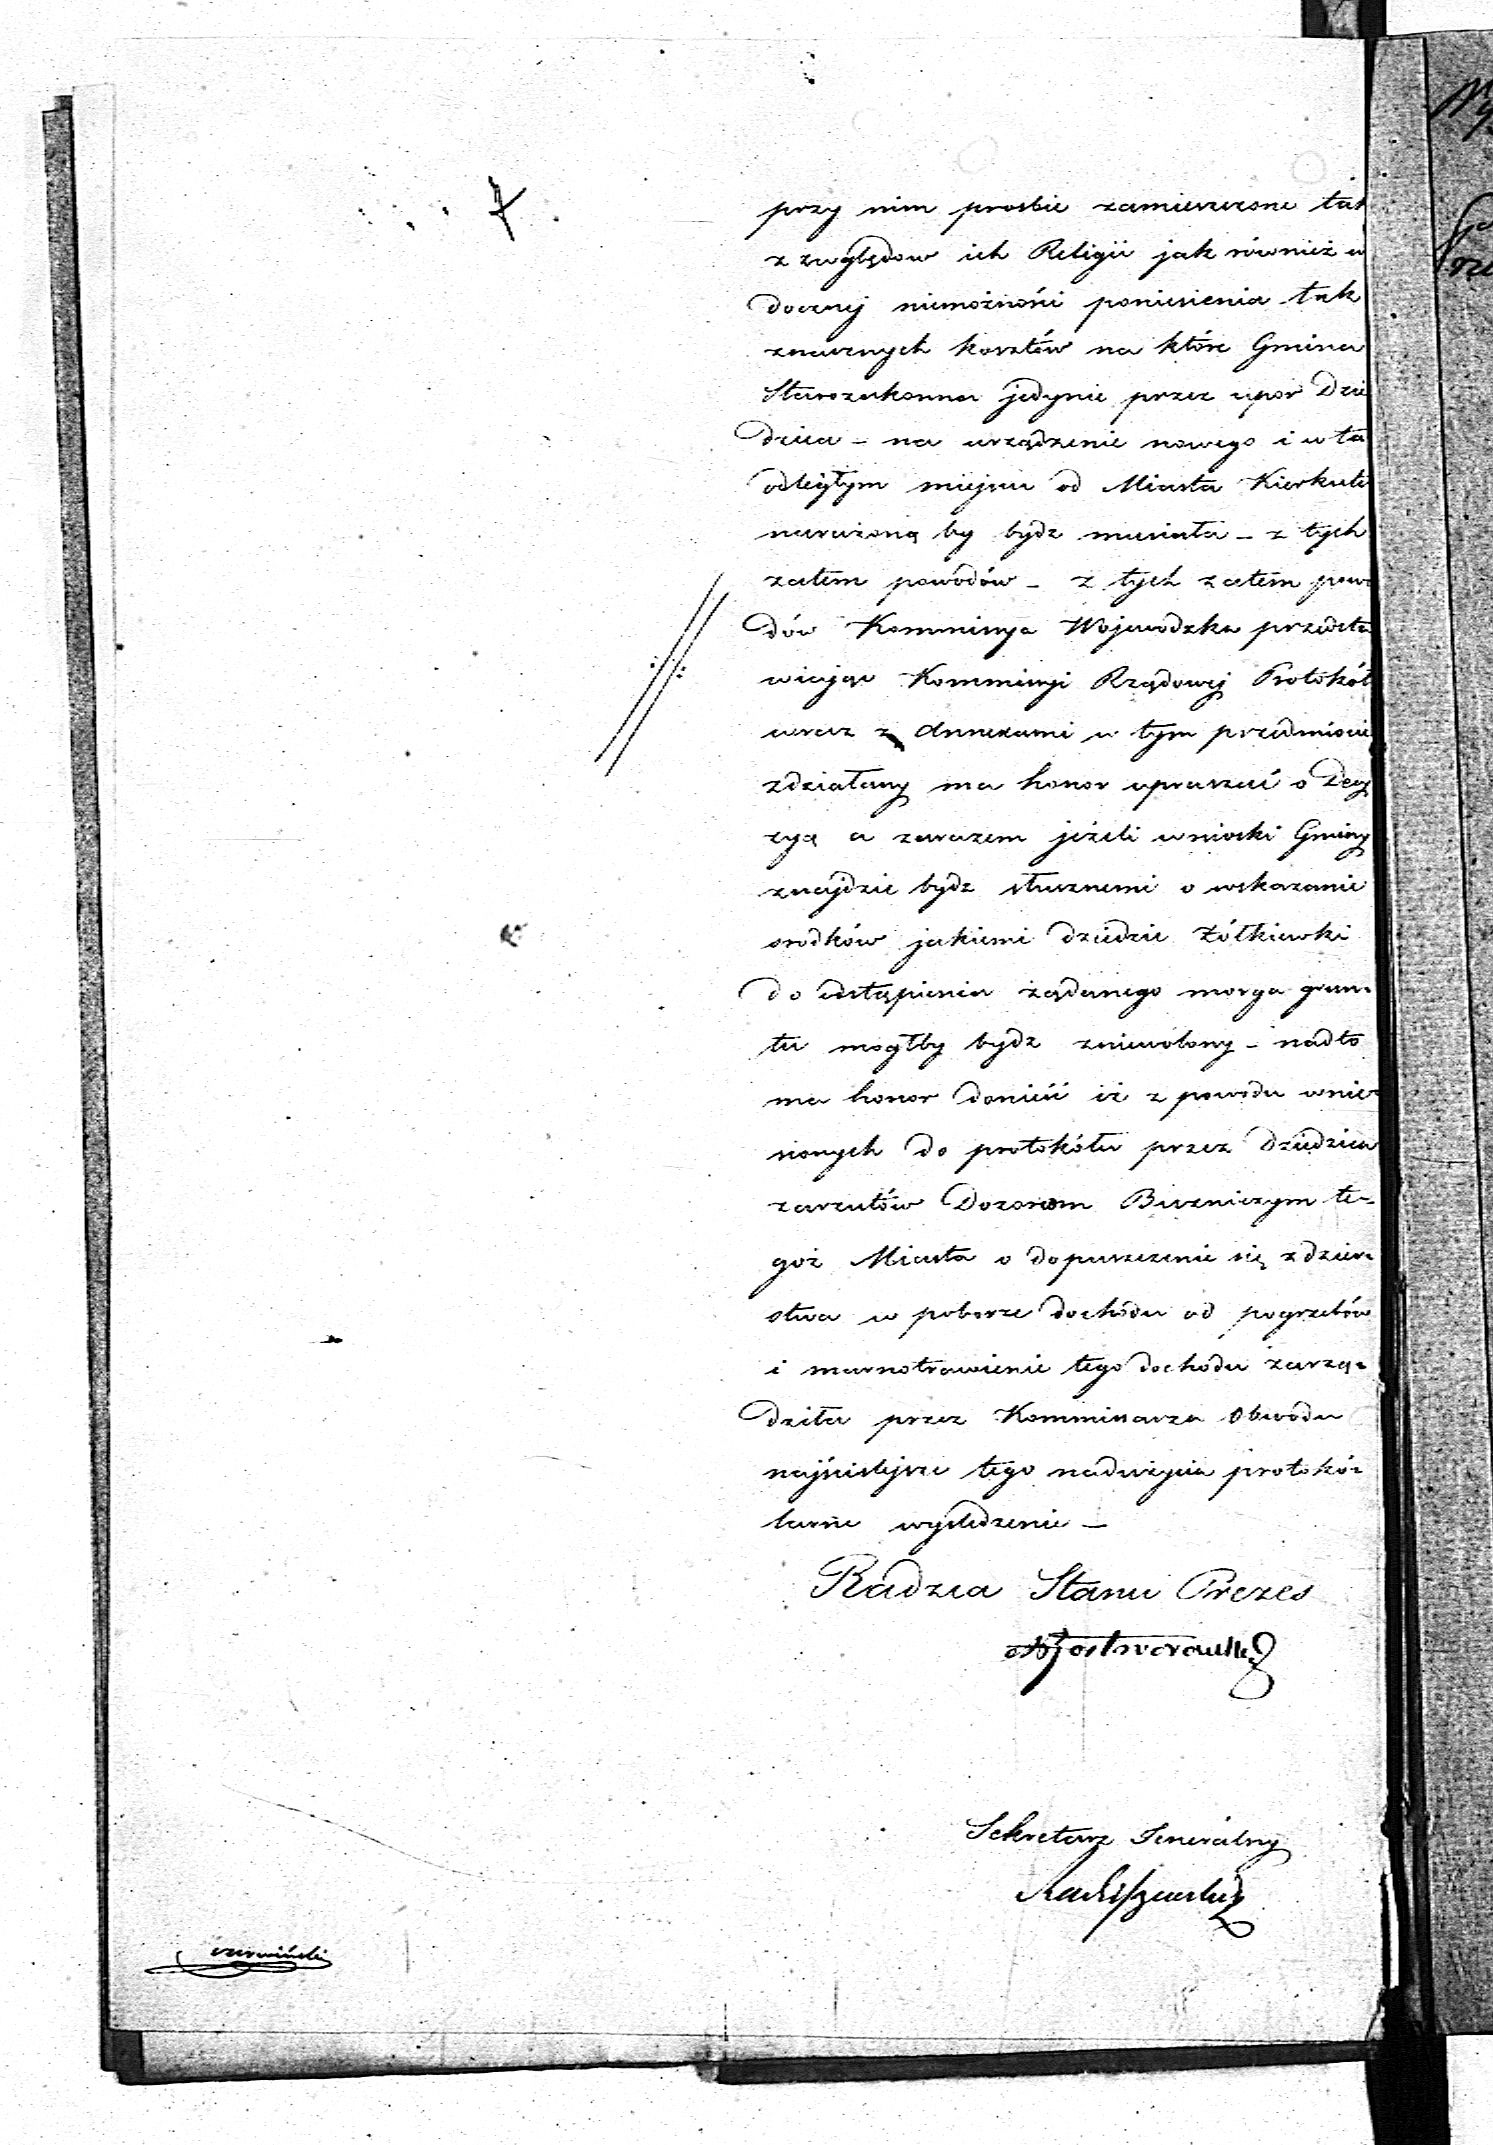 przy nim prosbie zamieszczone tak
z względow ich Religii jak również w
docznej niemożności poniesienia tak
znacznych kosztów na które Gmina
Starozakonna jedynie przez upor Dzie
dzica – na urządzenie nowego i w ta
odległym miejscu od Miasta Kierkutu
narażoną by bydz musiała – z tych
zatem powodów – z tych zatem powo
dów Kommissya Wojewodzka przedsta
wiając Kommissyi Rządowej Protokół
wraz z Annexami w tym przedmiocie
zdziałany ma honor upraszać o Decy
zyą a zarazem jeżeli wnioski Gminy
znajdzie bydz słusznemi o wskazanie
srodków jakiemi dziedzic Żółkiewski
do odstąpienia żądanego morga grun-
tu mogłby bydz zniewolony – nadto
ma honor donieść iż z powodu wnie-
sionych do protokółu przez Dziedzica
zarzutów Dozorom Bożniczym te-
goż Miasta o dopuszczenie się zdzier-
stwa w poborze dochodu od pogrzebów
i marnotrawienie tego dochodu zarzą-
dziła przez Kommissarza Obwodu
najściślejsze tego nadużycia protokó-
larne wyśledzenie –
Radzca Stanu Prezes
Sekretarz Jeneralny
Radziszewski
Czerwiński